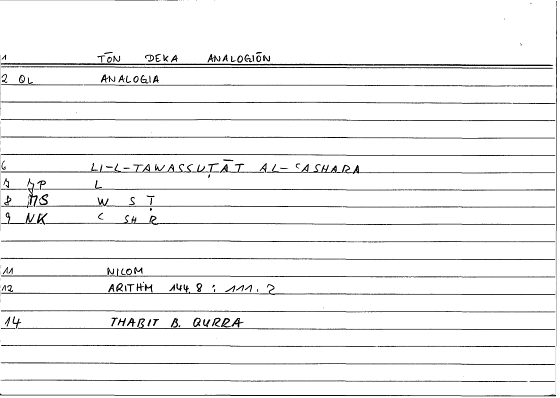 1 TŌN DEKA ANALOGIŌN
2 QL ANALOGIA
6 LI-L-TAWASSUṬĀT AL-ʿASHARA
7 JP L
8 MS W S Ṭ
9 NK ʿ SH R
11 NICOM
12 ARITHM 144.8 : 111.2
14 THABIT B. QURRA